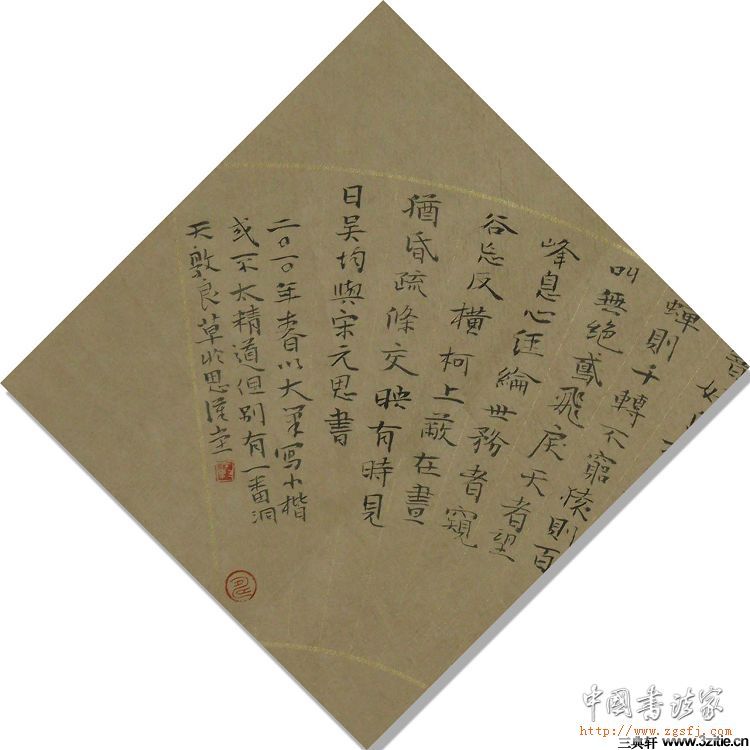 蟬則千轉不窮猿則百
叫無绝鳶飛戾天者望
峰息心經綸世務者窺
谷忘反橫柯上蔽在晝
猶昏疏條交映有時見
日吳均與宋元思書
二〇一〇年春日以大筆寫小楷
或不太精道但别有一番洞
天敷良草於思漢室
中国书法家
http://www.zgsfj.com
三典轩 www.3zitie.cn